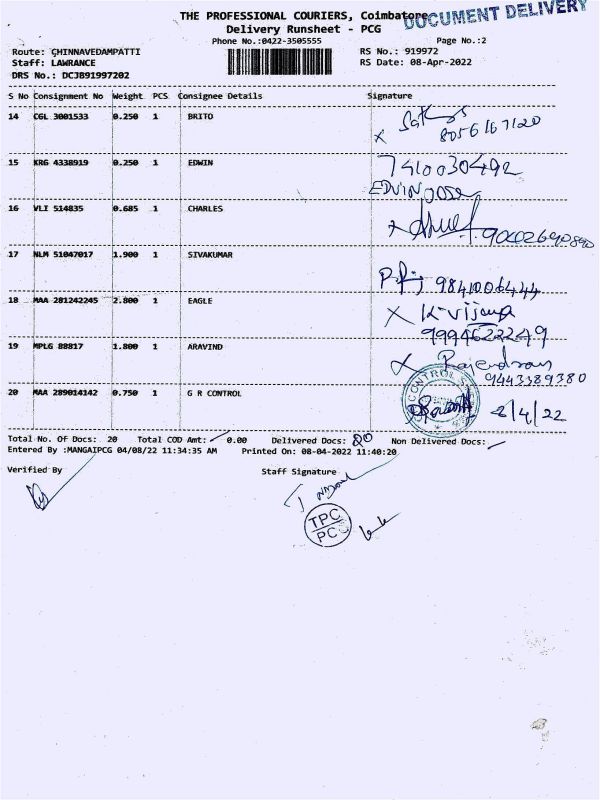 THE PROFESSIONAL COURIERS, Coimbatore
DOCUMENT DELIVERY
Delivery Runsheet - PCG
Phone No.:0422-3505555 Page No.:2
Route: CHINNAVEDAMPATTI RS No.: 919972
Staff: LAWRANCE RS Date: 08-Apr-2022
DRS No.: DCJB91997202
S No Consignment No Weight PCS Consignee Details Signature
14 CGL 3001533 0.250 1 BRITO
8056167120
15 KRG 4338919 0.250 1 EDWIN 7410030492
EDVIN
16 VLI 514835 0.685 1 CHARLES
17 NLM 51047017 1.900 1 SIVAKUMAR
9841006444
18 MAA 281242245 2.800 1 EAGLE X K-vijaya
9994622249
19 MPLG 88817 1.800 1 ARAVIND X Rajendran
9443389380
20 MAA 289014142 0.750 1 G R CONTROL CONTROL 8/4/22
Total No. Of Docs: 20 Total COD Amt: 0.00 Delivered Docs: Non Delivered Docs:
Entered By :MANGAIPCG 04/08/22 11:34:35 AM Printed On: 08-04-2022 11:40:20
Verified By Staff Signature
TPC
PC